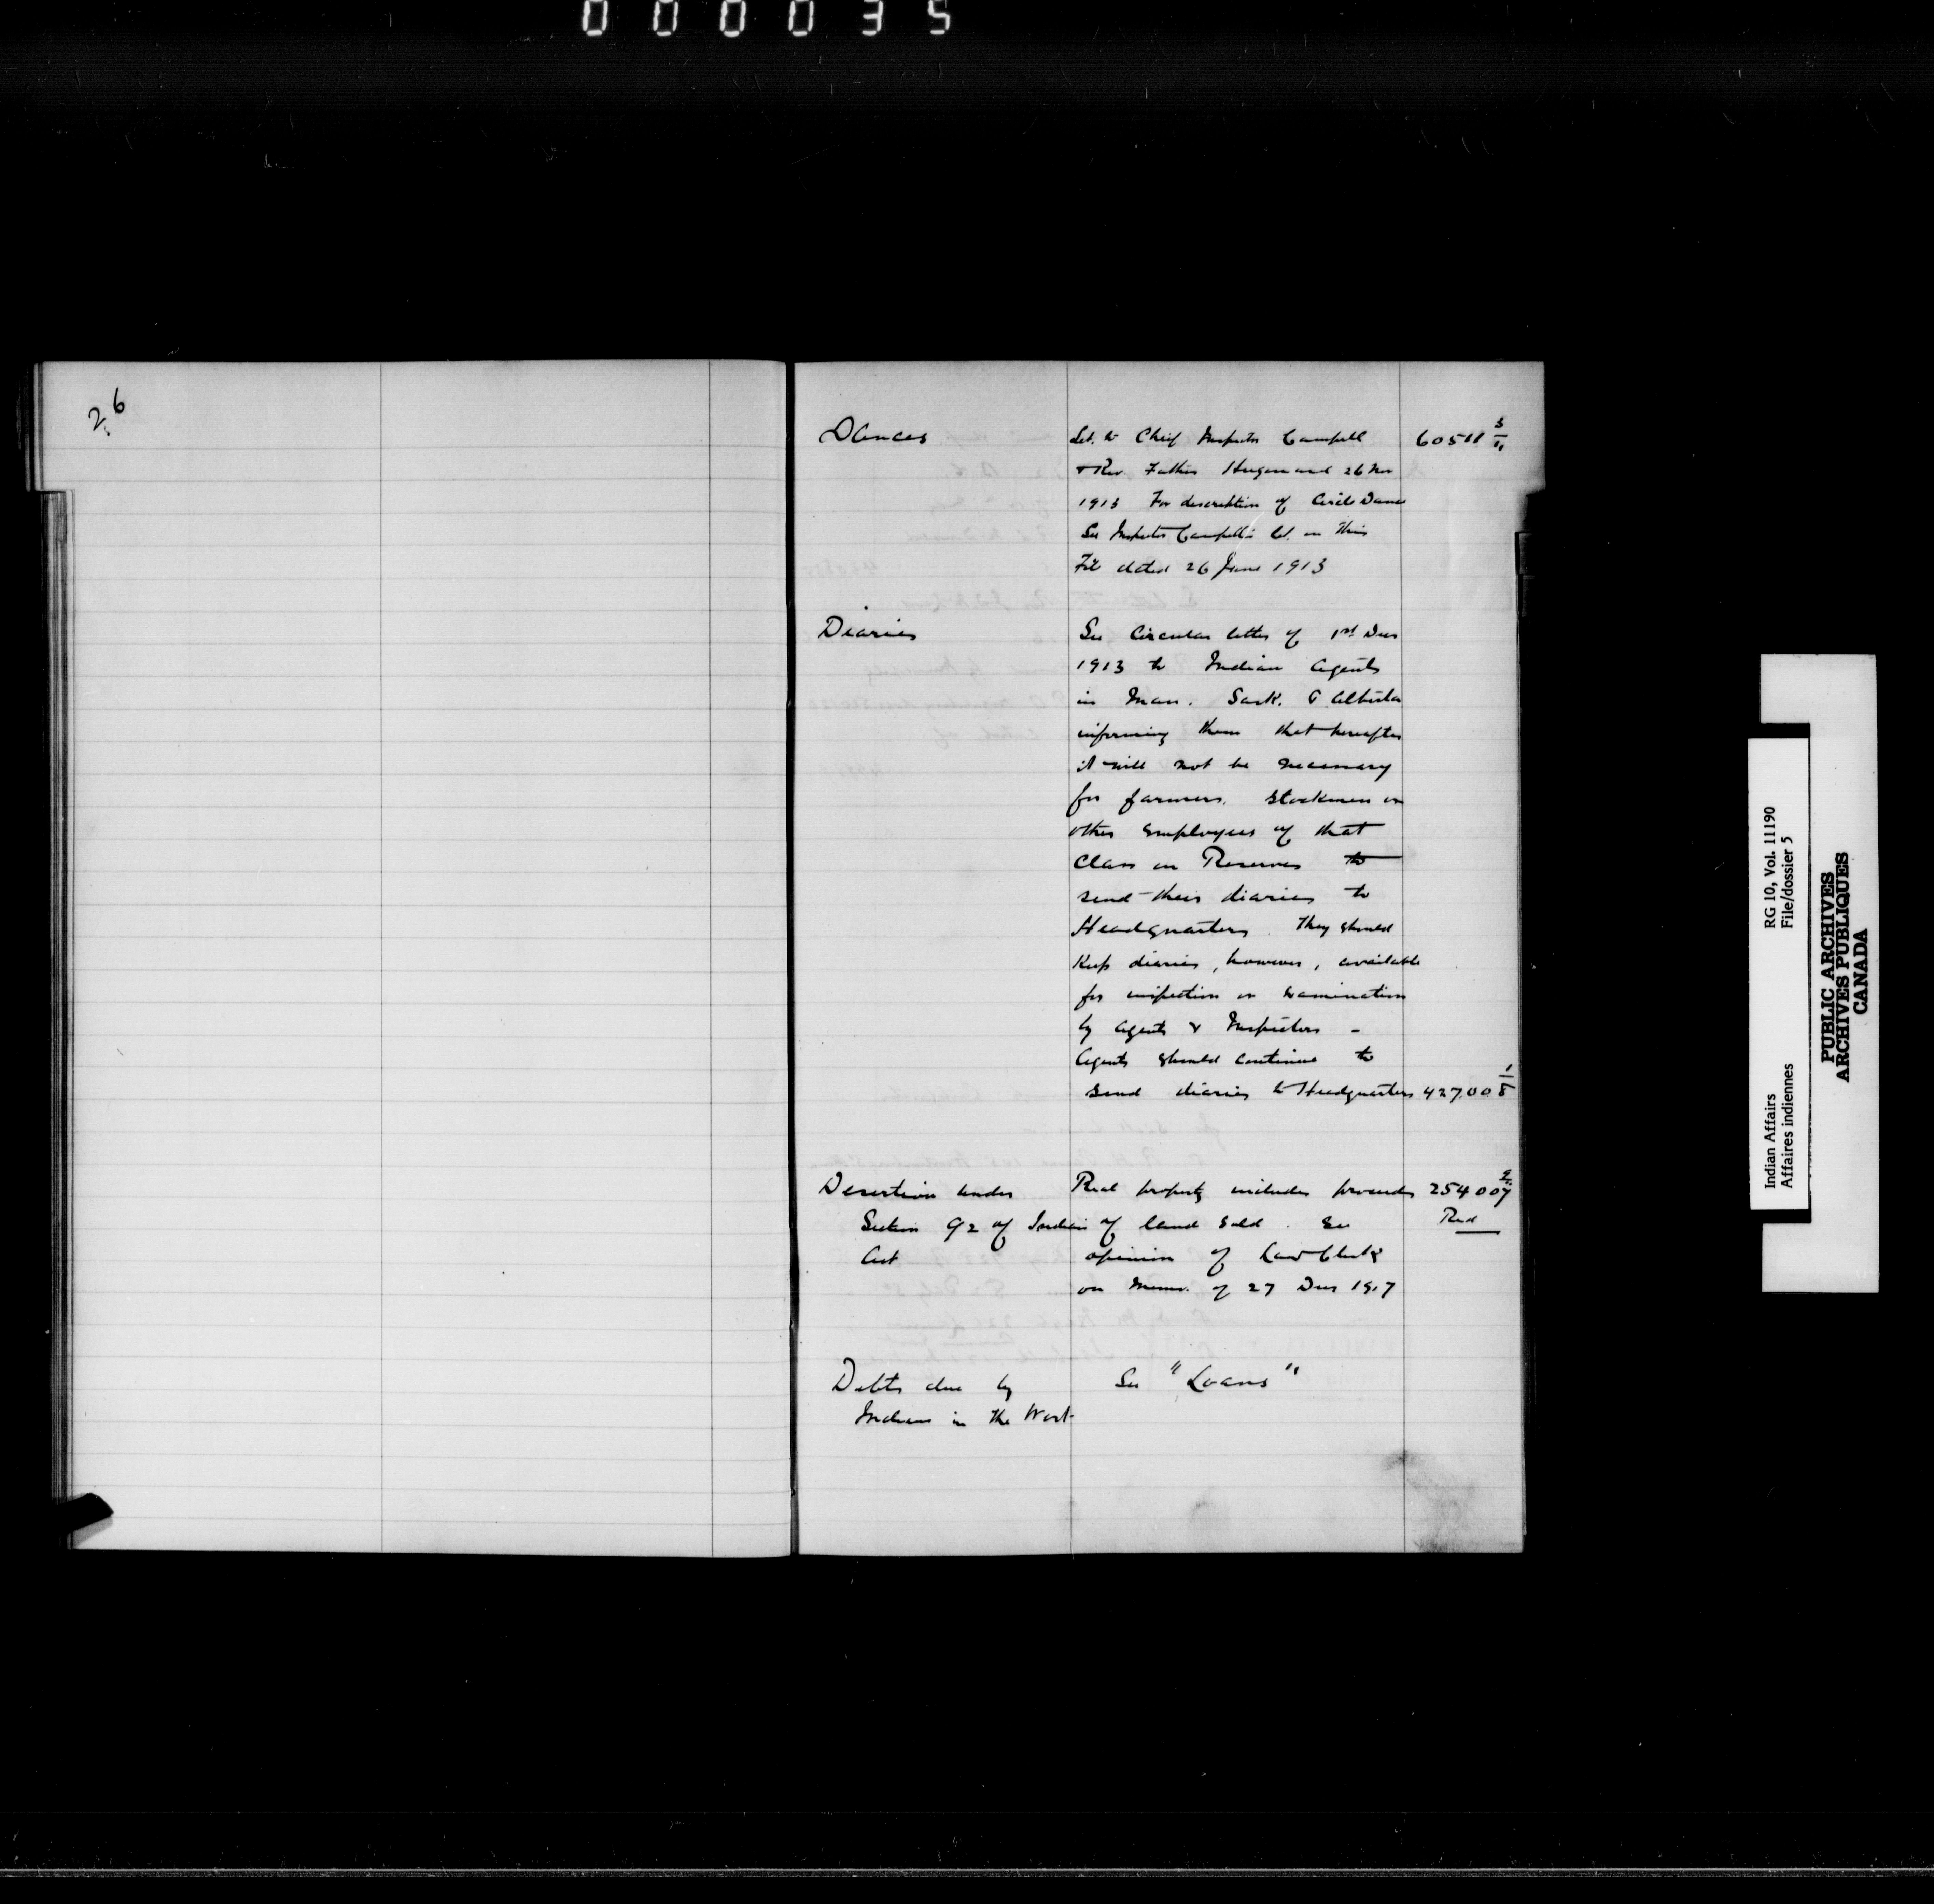 000035
26
Dances
Let. to Chief Inspector Campbell 60511 3/11
& Rev. Father Hugonard 26 Nov
1913 For description of Circle Dance
See Inspector Campbell's let. on this
File dated 26 June 1913
Diaries
See Circular letter of 1st Decr
1913 to Indian Agents
in Man. Sask. & Alberta
informing them that hereafter
it will not be necessary
for farmers, stockmen or
other employees of that
class on Reserves to
send their diaries to
Headquarters. They should
keep diaries, however, available
for inspection or examination
by agents & Inspectors -
Agents should continue to
send diaries to Headquarters 427.00 1/8
Desertion under
Section 92 of Indian
Act
Real property includes proceeds 254007
of land sold. See Red
opinion of Law Clerk
on memo. of 27 Decr 1917
Debts due by
Indians in the West
See "Loans"
Indian Affairs RG 10, Vol. 11190
Affaires indiennes File/dossier 5
PUBLIC ARCHIVES
ARCHIVES PUBLIQUES
CANADA